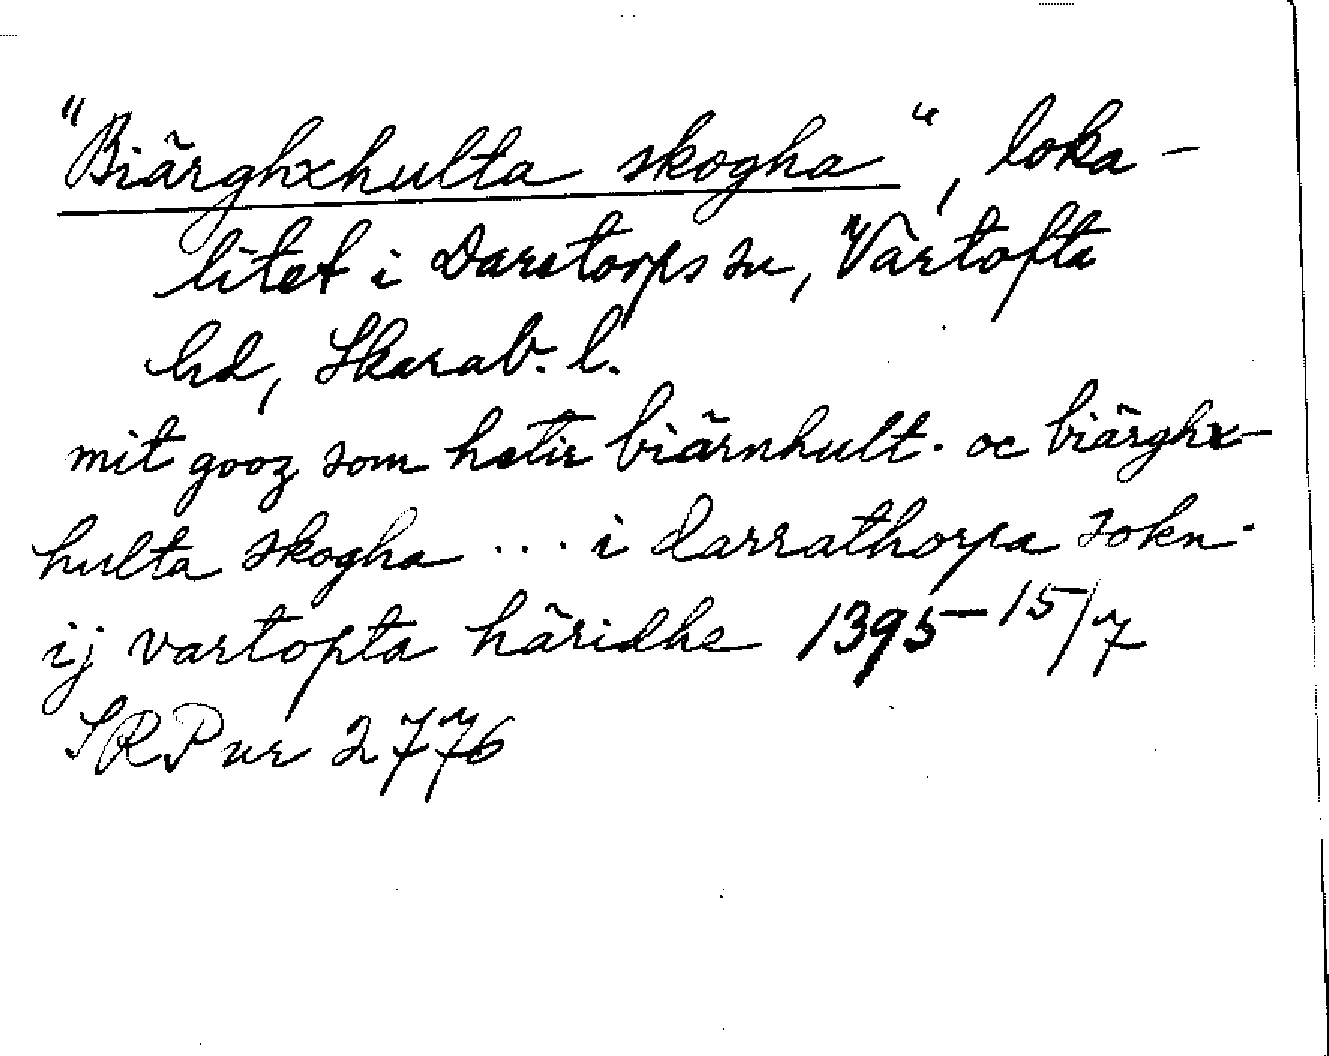 "Biärghxhulta skogha", loka-
litet i Daretorps sn, Vartofta
hd, Skarab. l.
mit gooz som hetir biärnhult. oc biärghx-
hulta skogha ... i darrathorpa sokn.
ij vartopta häridhe 1395 15/7
SRP nr 2776